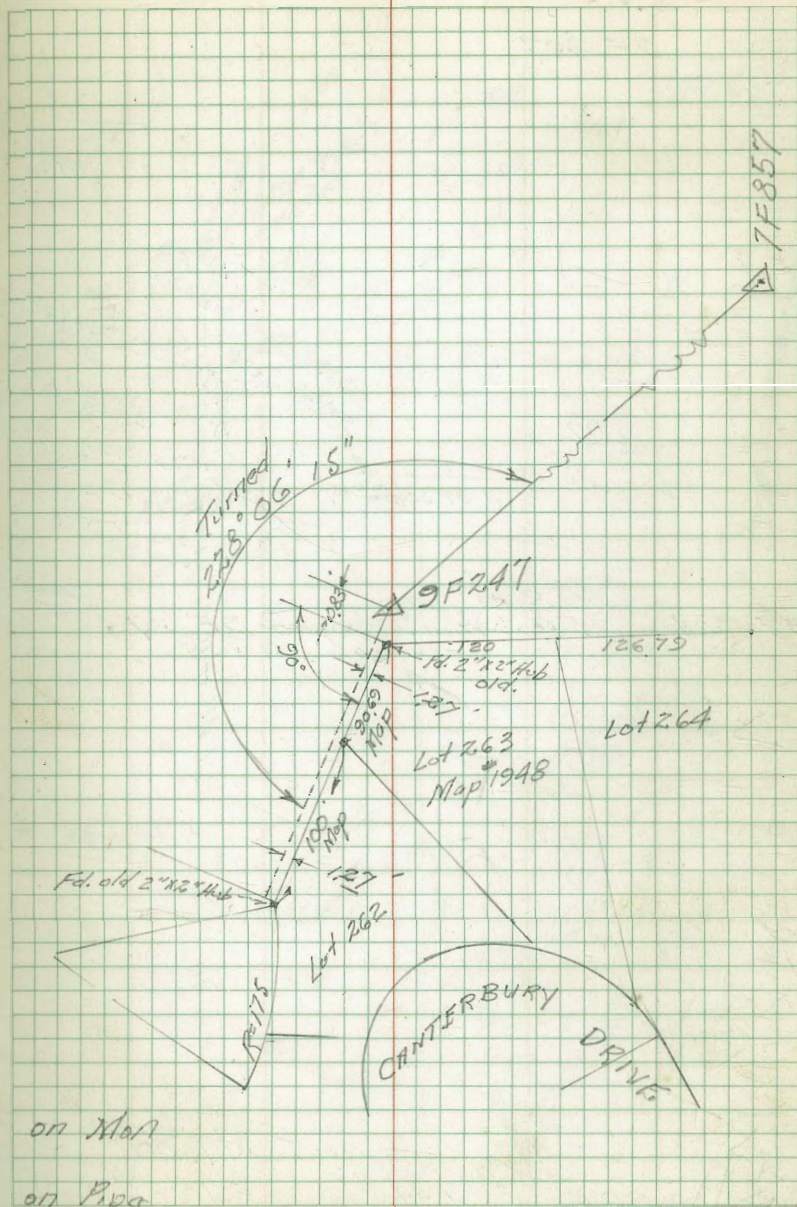 7F857
Turned
228° 06' 15"
9F247
0.83
90°
120
126.79
Fd. 2"x2" Hub
old.
1.27
90.69
Map
Lot 263
Map #1948
Lot 264
100'
Map
1.27
Fd. old 2"x2" Hub
Lot 262
R=175
CANTERBURY
DRIVE
on Mon
on Pipe